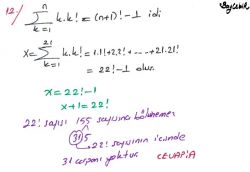 12.)
n
∑ k.k! = (n+1)! - 1 idi
k=1
21
x = ∑ k.k! = 1.1! + 2.2! + ... + 21.21!
k=1
= 22! - 1 olur.
x = 22! - 1
x + 1 = 22!
22! sayısı 155 sayısına bölünemez
31 5
22! sayısının içinde
31 çarpanı yoktur. CEVAP: A